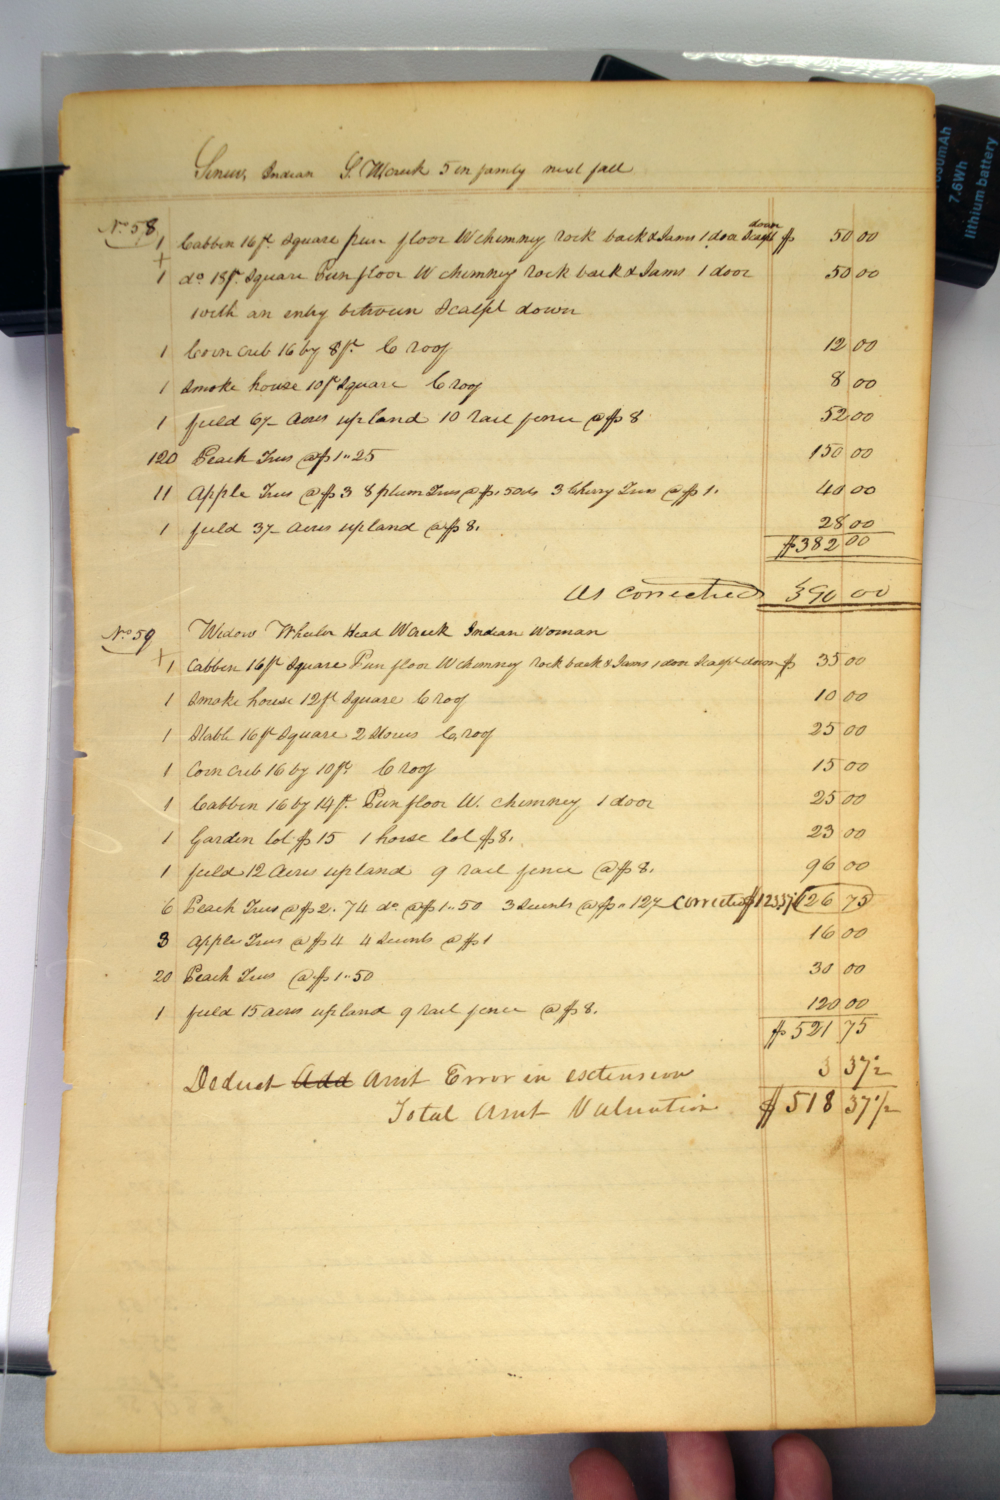 Indian S. Wcreek 5 in family next fall
No. 58
1 Cabbin 16ft. Square pun floor W chimney rock back & Jams 1 door Scalpt down $ 50 00
1 do. 18ft. Square Pun floor W chimney rock back & Jams 1 door 50 00
with an entry between Scalpt down
1 Corn Crib 16 by 8ft. C roof 12 00
1 Smoke house 10ft Square C roof 8 00
1 field 6½ Acres upland 10 rail fence @ $ 8 52 00
120 Peach Trees @ $ 1..25 150 00
11 Apple Trees @ $ 3 8 plum Trees @ $. 50cts 3 Cherry Trees @ $ 1. 40 00
1 field 3½ Acres upland @ $ 8. 28 00
$ 382 00
As corrected 390 00
No. 59 Widow Wheeler Head Wcreek Indian Woman
1 Cabbin 16ft Square Pun floor W chimney rock back & Jams 1 door Scalpt down $ 35 00
1 Smoke house 12ft Square C roof 10 00
1 Stable 16ft Square 2 C roof 25 00
1 Corn Crib 16 by 10ft. C roof 15 00
1 Cabbin 16 by 14ft. Pun floor W. chimney 1 door 25 00
1 Garden lot $ 15 1 house lot $ 8. 23 00
1 field 12 Acres upland 9 rail fence @ $ 8. 96 00
6 Peach Trees @ $ 2. 74 do. @ $ 1..50 3 @ $ .. 12½ Corrected $ 123 37½ 126 75
3 Apple Trees @ $ 4 4 @ $ 1 16 00
20 Peach Trees @ $ 1..50 30 00
1 field 15 acres upland 9 rail fence @ $ 8. 120 00
$ 521 75
Deduct Add Amt Error in extension 3 37½
Total Amt Valuation $ 518 37 1/2
7.6Wh
lithium battery